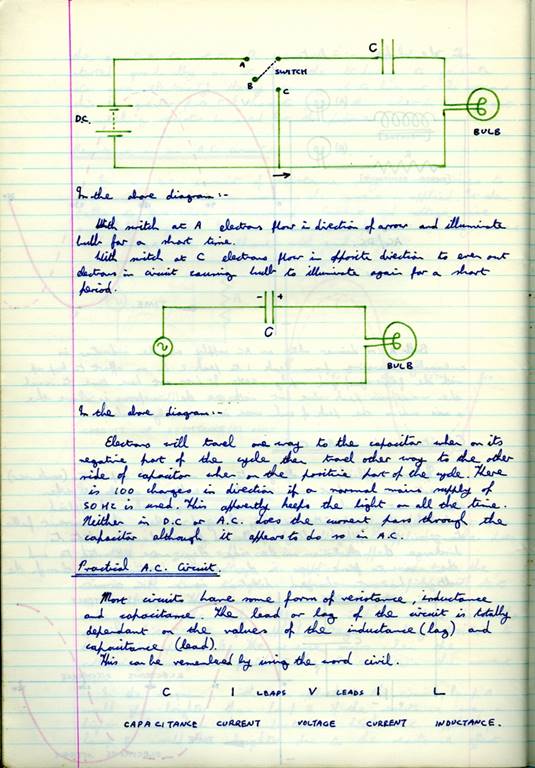 C
A
SWITCH
B
C
D.C.
BULB
In the above diagram:-
With switch at A electrons flow in direction of arrow and illuminate
bulb for a short time.
With switch at C electrons flow in opposite direction to even out
electrons in circuit causing bulb to illuminate again for a short
period.
- +
C
BULB
In the above diagram:-
Electrons will travel one way to the capacitor when on its
negative part of the cycle then travel other way to the other
side of capacitor when on the positive part of the cycle. There
is 100 changes in direction if a normal mains supply of
50 Hz is used. This apparently keeps the light on all the time.
Neither in D.C or A.C. does the current pass through the
capacitor although it appears to do so in A.C.
Practical A.C. Circuit.
Most circuits have some form of resistance, inductance
and capacitance. The lead or lag of the circuit is totally
dependant on the values of the inductance (lag) and
capacitance (lead).
This can be remembered by using the word civil.
C I LEADS V LEADS I L
CAPACITANCE CURRENT VOLTAGE CURRENT INDUCTANCE.